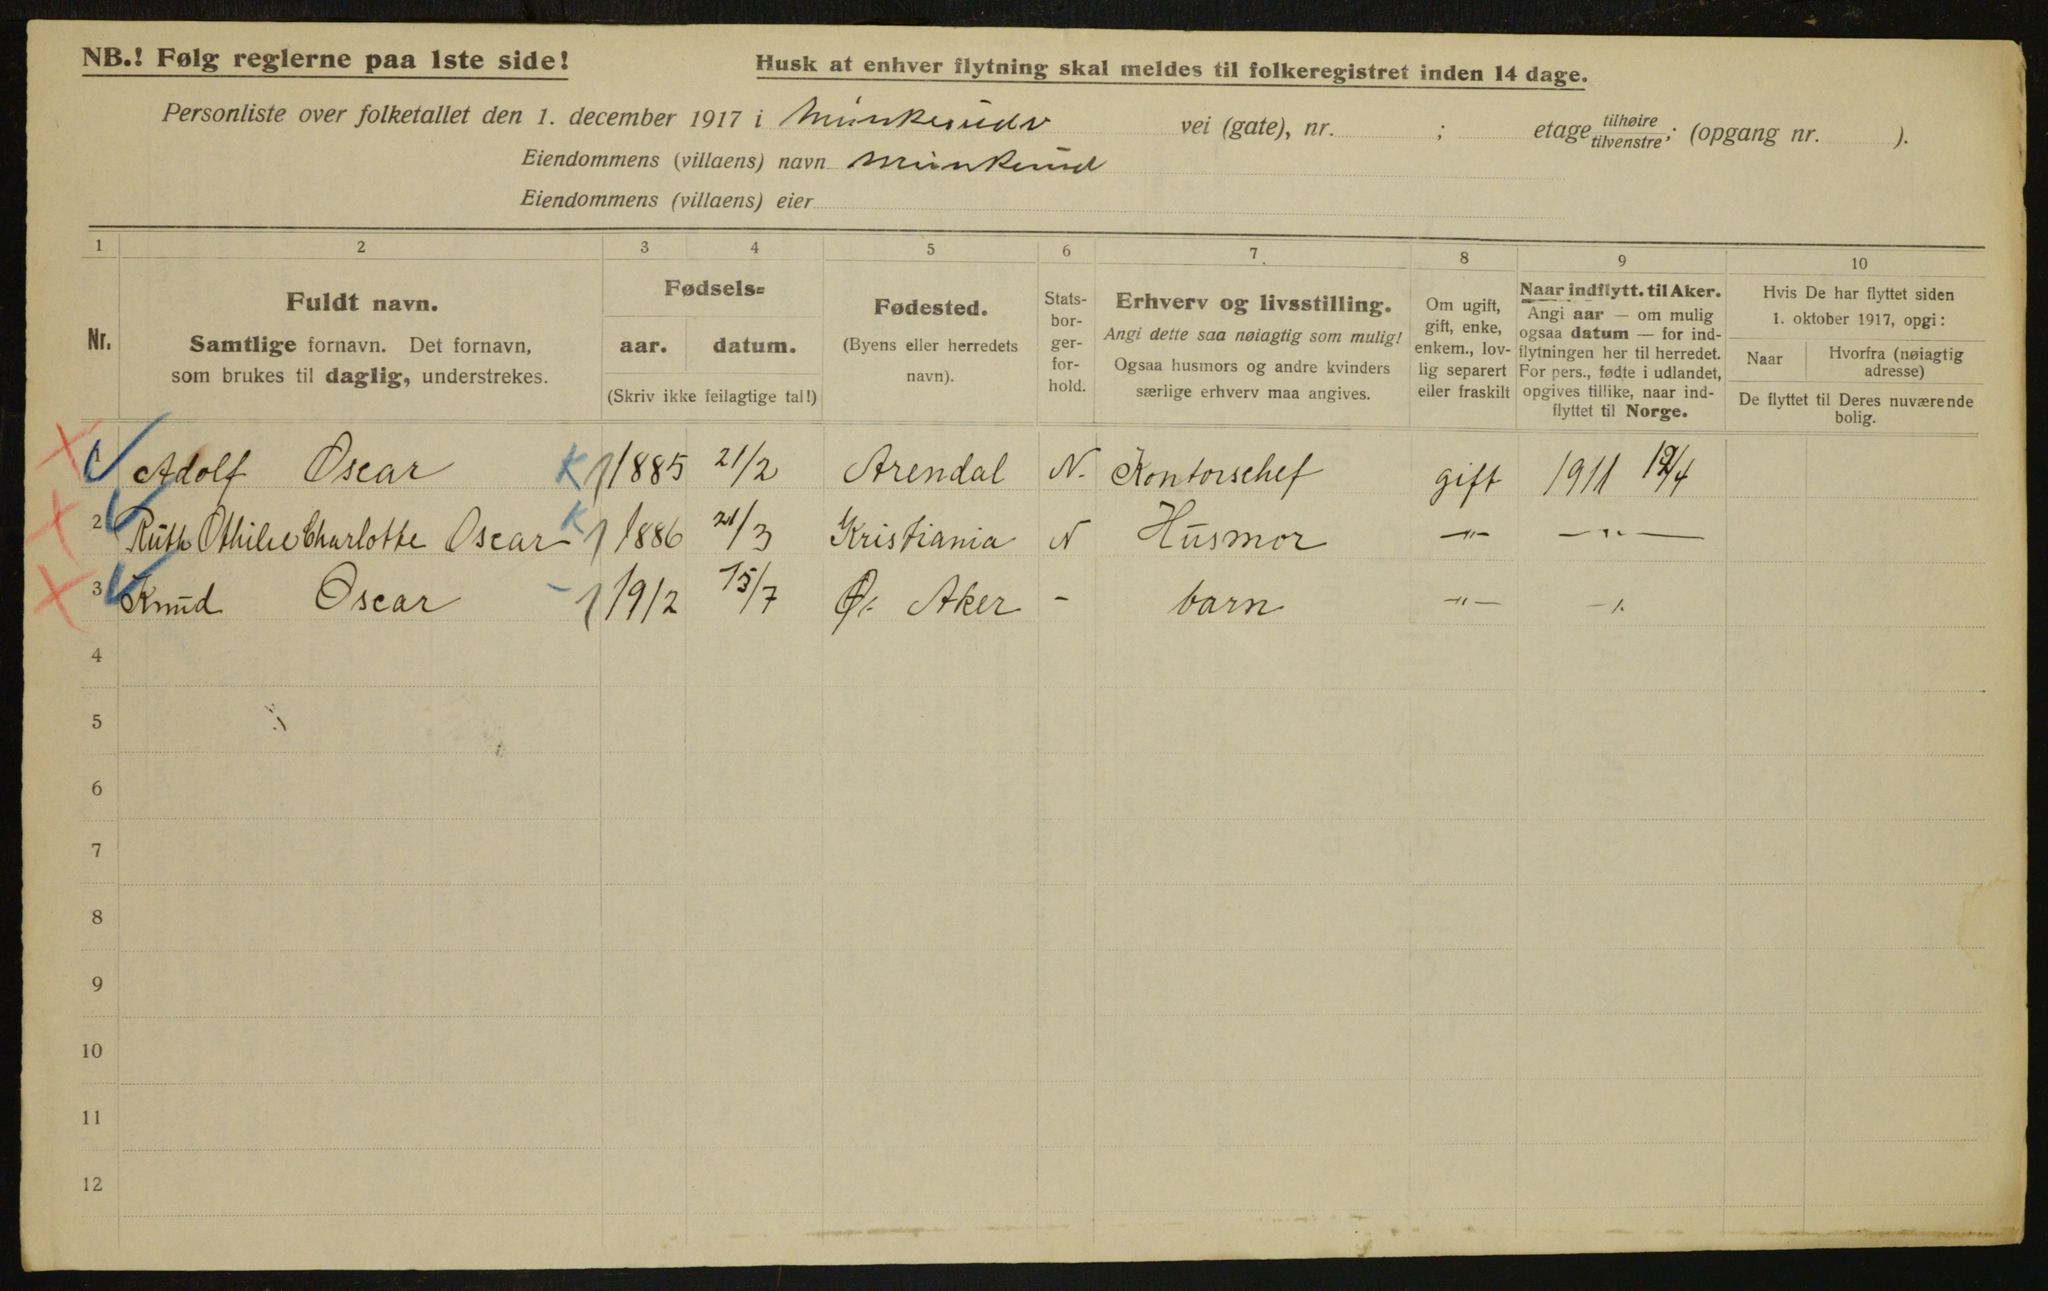 NB.! Følg reglerne paa 1ste side!
Husk at enhver flytning skal meldes til folkeregistret inden 14 dage.
Personliste over folketallet den 1. december 1917 i Munkerudv vei (gate), nr. ; etage tilhøire tilvenstre; (opgang nr. ).
Eiendommens (villaens) navn Munkerud
Eiendommens (villaens) eier
1 2 3 4 5 6 7. 8 9 10
Nr.
Fuldt navn.
Samtlige fornavn. Det fornavn,
som brukes til daglig, understrekes.
Fødsels=
aar. datum.
(Skriv ikke feilagtige tal!)
Fødested.
(Byens eller herredets
navn).
Stats-
bor-
ger-
for-
hold.
Erhverv og livsstilling.
Angi dette saa nøiagtig som mulig!
Ogsaa husmors og andre kvinders
særlige erhverv maa angives.
Om ugift,
gift, enke,
enkem., lov-
lig separert
eller fraskilt
Naar indflytt. til Aker.
Angi aar — om mulig
ogsaa datum — for ind-
flytningen her til herredet.
For pers., fødte i udlandet,
opgives tillike, naar ind-
flyttet til Norge.
Hvis De har flyttet siden
1. oktober 1917, opgi:
Naar
Hvorfra (nøiagtig
adresse)
De flyttet til Deres nuværende
bolig.
1 Adolf Oscar K 1885 21/2 Arendal N. Kontorschef gift 1911 /4
2 Ruth Othilie Charlotte Oscar K 1886 21/3 Kristiania N Husmor —"— —"—
3 Knud Oscar - 1912 15/7 Ø. Aker - barn —"— —"—
4
5
6
7
8
9
10
11
12